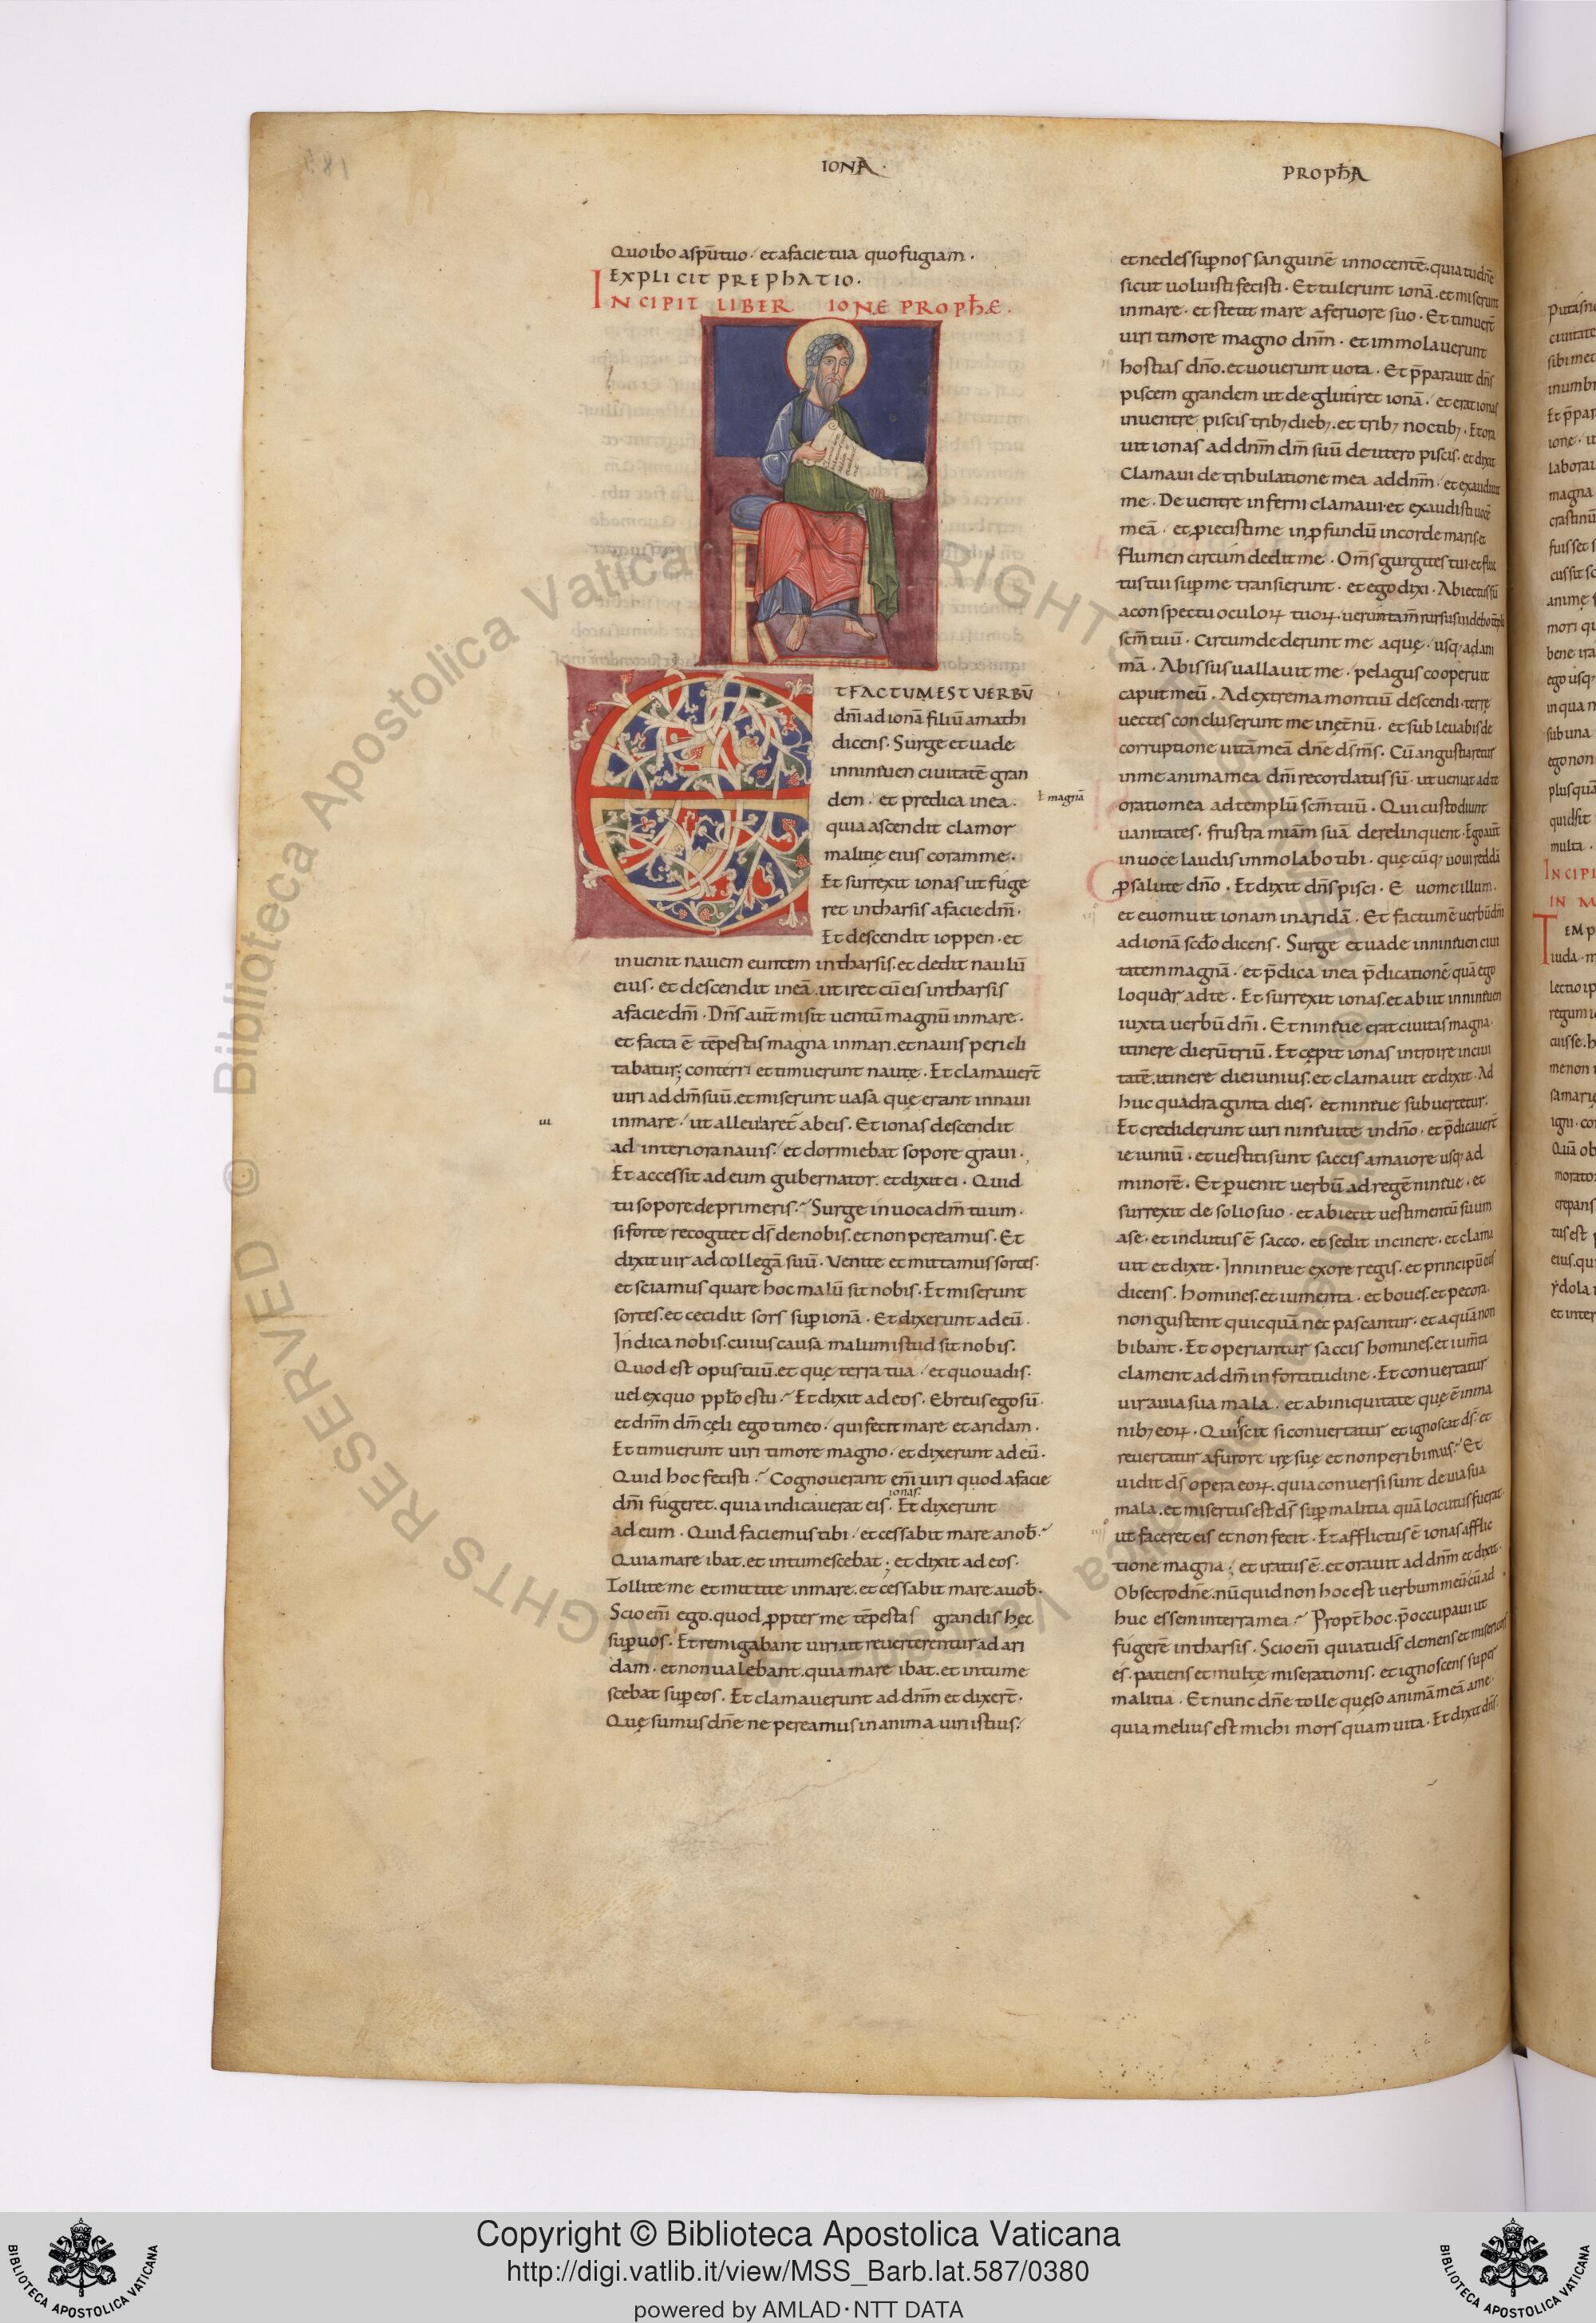 IONA·
PROPħA
Quo ibo a sp̄u tuo· et a facie tua quo fugiam·
EXPLICIT PREPHATIO·
INCIPIT LIBER IONE PROPħE·
ET FACTUM EST VERBŪ
dn̄i ad ionā filiū amathi
dicens· Surge et uade
in niniuen ciuitatē gran
dem· et predica in ea·
ł magnā
quia ascendit clamor
malitię eius coram me·
Et surrexit ionas ut fuge
ret in tharsis a facie dn̄i·
Et descendit ioppen· et
inuenit nauem euntem in tharsis· et dedit naulū
eius· et descendit in eā· ut iret cū eis in tharsis
a facie dn̄i· Dn̄s aut̄ misit uentū magnū in mare·
et facta ē tēpestas magna in mari· et nauis pericli
tabatur; conterri et timuerunt nautę· Et clamauer̄t
uiri ad dm̄ suū· et miserunt uasa quę erant in naui
in mare· ut alleuiaret̄ ab eis· Et ionas descendit
ad interiora nauis· et dormiebat sopore graui·
Et accessit ad eum gubernator· et dixit ei· Quid
tu sopore deprimeris· Surge inuoca dm̄ tuum·
si forte recogitet ds̄ de nobis· et non pereamus· Et
dixit uir ad collegā suū· Venite et mittamus sortes·
et sciamus quare hoc malū sit nobis· Et miserunt
sortes· et cecidit sors sup ionā· Et dixerunt ad eū·
Indica nobis· cuius causa malum istud sit nobis·
Quod est opus tuū· et quę terra tua· et quo uadis·
uel ex quo pplo es tu· Et dixit ad eos· Ebreus ego sū·
et dn̄m dm̄ cęli ego timeo· qui fecit mare et aridam·
Et timuerunt uiri timore magno· et dixerunt ad eū·
Quid hoc fecisti· Cognouerant em̄ uiri quod a facie
dn̄i fugeret· quia indicauerat eis ionas· Et dixerunt
ad eum· Quid faciemus tibi· et cessabit mare a nob̄·
Quia mare ibat· et intumescebat; et dixit ad eos·
Tollite me et mittite in mare· et cessabit mare a uob̄·
Scio em̄ ego· quod ppter me tēpestas grandis hęc
sup uos· Et remigabant uiri ut reuerterentur ad ari
dam· et non ualebant· quia mare ibat· et intume
scebat sup eos· Et clamauerunt ad dn̄m et dixer̄t·
Quęsumus dn̄e ne pereamus in anima uiri istius·
et ne des sup nos sanguinē innocentē· quia tu dn̄e
sicut uoluisti fecisti· Et tulerunt ionā· et miserunt
in mare· et stetit mare a feruore suo· Et timuer̄t
uiri timore magno dn̄m· et immolauerunt
hostias dn̄o· et uouerunt uota· Et p̄parauit dn̄s
piscem grandem ut deglutiret ionā· et erat ionas
in uentre piscis trib; dieb;· et trib; noctib;· Et ora
uit ionas ad dn̄m dm̄ suū de utero piscis· et dixit
Clamaui de tribulatione mea ad dn̄m· et exaudiuit
me· De uentre inferni clamaui· et exaudisti uocē
meā· et piecisti me in pfundū in corde maris· et
flumen circumdedit me· Om̄s gurgites tui· et fluc
tus tui sup me transierunt· et ego dixi· Abiectus sū
a conspectu oculoꝝ tuoꝝ· ueruntam̄ rursus uidebo tēplū
sc̄m tuū· Circumdederunt me aquę· usq; ad ani
mā· Abissus uallauit me· pelagus cooperuit
caput meū· Ad extrema montiū descendi· terrę
uectes concluserunt me in ęt̄nū· et subleuabis de
corruptione uitā meā dn̄e ds̄ m̄s· Cū angustiaretur
in me anima mea dn̄i recordatus sū· ut ueniat ad te
oratio mea ad templū sc̄m tuū· Qui custodiunt
uanitates· frustra miam̄ suā derelinquent· Ego aut̄
in uoce laudis immolabo tibi· quęcūq; uoui reddā
p salute dn̄o· Et dixit dn̄s pisci· Euome illum·
et euomuit ionam in aridā· Et factum ē uerbū dn̄i
ad ionā scd̄o dicens· Surge et uade in niniuen ciui
tatem magnā· et p̄dica in ea p̄dicationē quā ego
loquor ad te· Et surrexit ionas· et abiit in niniuen
iuxta uerbū dn̄i· Et niniue erat ciuitas magna·
itinere dierū triū· Et cępit ionas introire in ciui
tatē· itinere diei unius· et clamauit et dixit· Ad
huc quadraginta dies· et niniue subuertetur·
Et crediderunt uiri niniuite in dn̄o· et p̄dicauer̄t
ieiuniū· et uestiti sunt saccis a maiore usq; ad
minorē· Et puenit uerbū ad regē niniue· et
surrexit de solio suo· et abiecit uestimentū suum
a se· et indutus ē sacco· et sedit in cinere· et clama
uit et dixit· In niniue ex ore regis· et principū eius
dicens· Homines· et iumenta· et boues· et pecora·
non gustent quicquā nec pascantur· et aquā non
bibant· Et operiantur saccis homines· et ium̄ta
clament ad dm̄ in fortitudine· Et conuertatur
uir a uia sua mala· et ab iniquitate quę ē in ma
nib; eoꝝ· Quis scit si conuertatur et ignoscat ds̄· et
reuertatur a furore irę suę et non peribimus· Et
uidit ds̄ opera eoꝝ· quia conuersi sunt de uia sua
mala· et misertus est ds̄ sup malitia quā locutus fuerat·
ut faceret eis et non fecit· Et afflictus ē ionas afflic
tione magna; et iratus ē· et orauit ad dn̄m et dixit·
Obsecro dn̄e· nūquid non hoc est uerbum meū· cū ad
huc essem in terra mea· Propt̄ hoc· p̄occupaui ut
fugerē in tharsis· Scio em̄ quia tu ds̄ clemens et misericors
es· patiens et multę miserationis· et ignoscens super
malitia· Et nunc dn̄e tolle quęso animā meā a me·
quia melius est michi mors quam uita· Et dixit dn̄s·
Copyright © Biblioteca Apostolica Vaticana
http://digi.vatlib.it/view/MSS_Barb.lat.587/0380
powered by AMLAD·NTT DATA
BIBLIOTECA APOSTOLICA VATICANA
BIBLIOTECA APOSTOLICA VATICANA